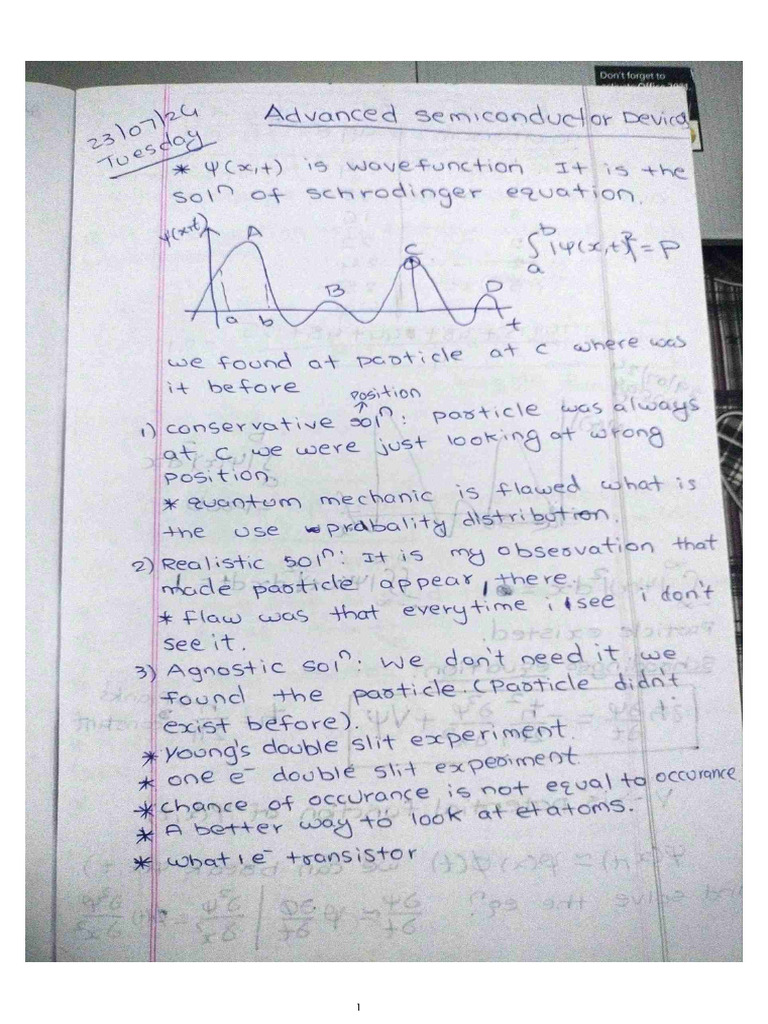 Don't forget to
23/07/24
Tuesday
Advanced semiconductor Devices
* ψ(x,t) is wavefunction It is the
solⁿ of schrodinger equation.
ψ(x,t)
A
B
C
D
a
b
t
∫ₐᵇ |ψ(x,t)|² = P
we found at particle at c where was
it before
position
↑
1) conservative solⁿ: particle was always
at C we were just looking at wrong
position.
* quantum mechanic is flawed what is
the use prabality distribution.
2) Realistic solⁿ: It is my observation that
made particle appear there.
* flaw was that everytime i see i don't
see it.
3) Agnostic solⁿ: we don't need it we
found the particle. (Particle didn't
exist before).
* Young's double slit experiment.
* one e⁻ double slit experiment.
* chance of occurance is not equal to occurance
* A better way to look at atoms.
* what 1 e⁻ transistor
1